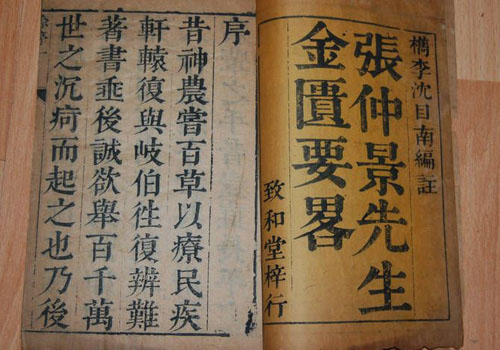 檇李沈目南編註
張仲景先生
金匱要畧
致和堂梓行
序
昔神農嘗百草以療民疾
軒轅復與岐伯徃復辨難
著書垂後誠欲舉百千萬
世之沉疴而起之也乃後